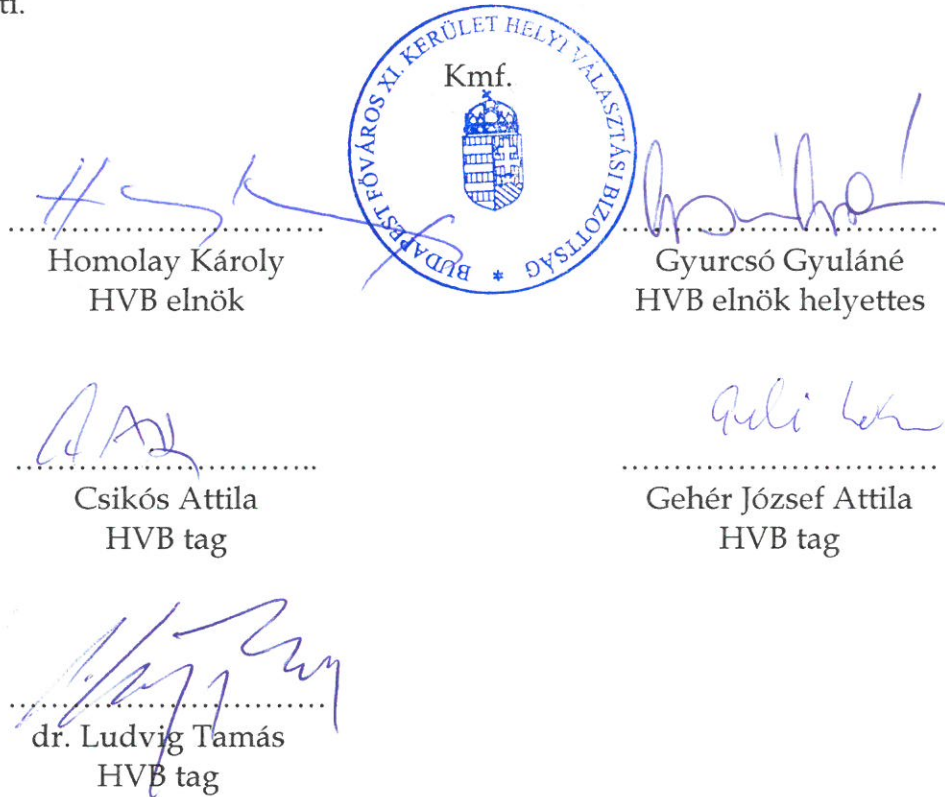 ti.
BUDAPEST FŐVÁROS XI. KERÜLET HELYI VÁLASZTÁSI BIZOTTSÁG *
Kmf.
Homolay Károly
HVB elnök
Gyurcsó Gyuláné
HVB elnök helyettes
Csikós Attila
HVB tag
Gehér József Attila
HVB tag
dr. Ludvig Tamás
HVB tag